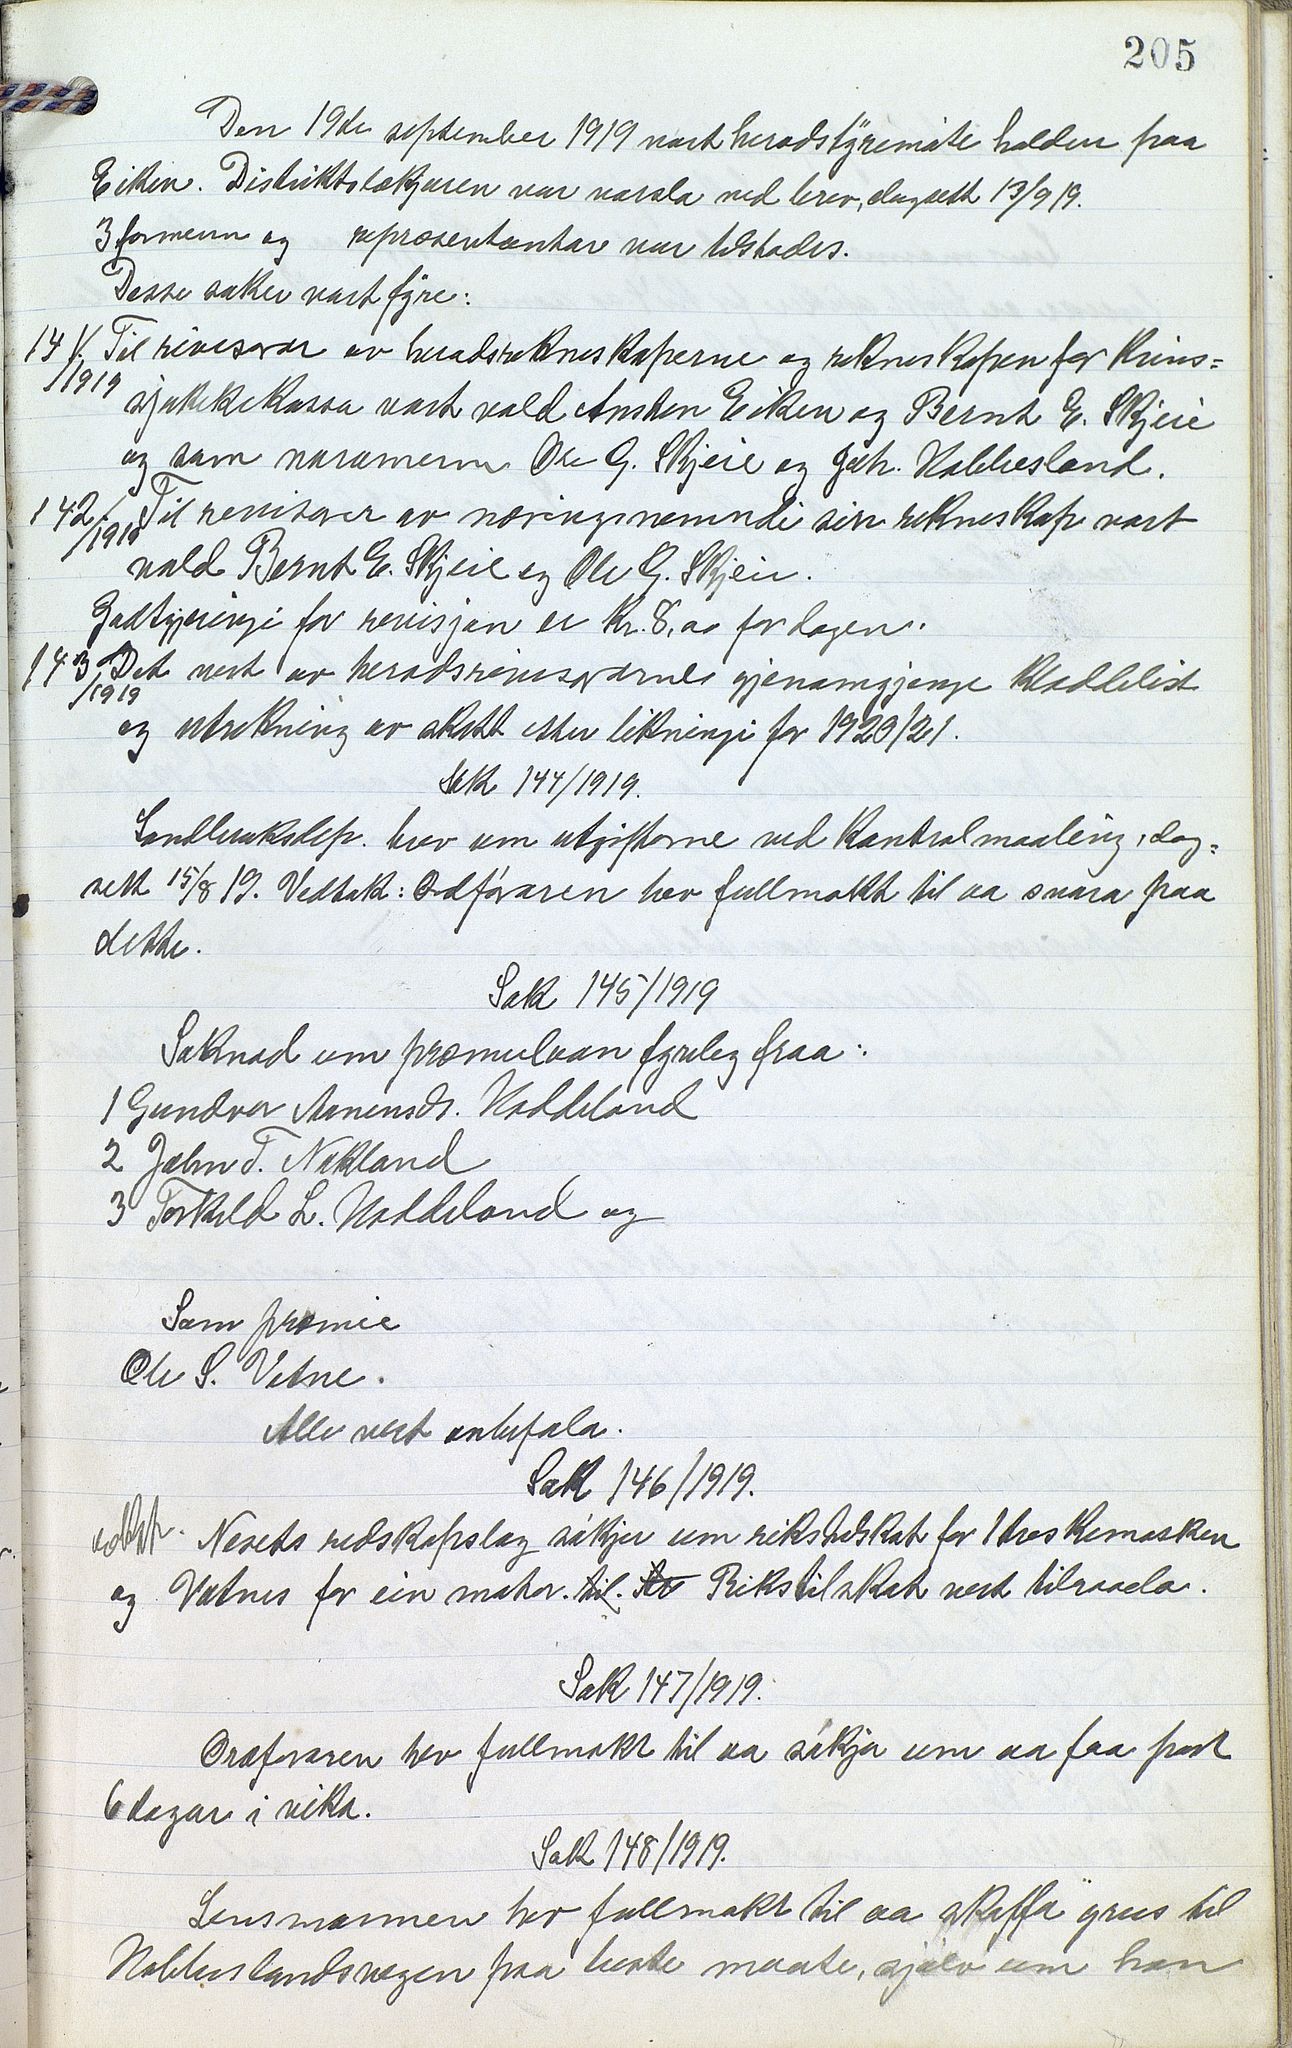 205
Den 19de september 1919 vart heradstyremöte halden paa
Eiken. Distriktslækjaren var varsla ved brev, dagsett 13/9 19.
3 formenn og representantar var tilstades.
Desse saker vart fyre:
141/1919 Til revisorar av heradsrekneskaperne og rekneskapen for Krins=
sjukekassa vart vald Ansten Eiken og Bernt E. Skjeie
og som varamenn Ole G. Skjeie og Joh. Hobbesland.
142/1919 Til revisorer av næringsnemndi sin rekneskap vart
vald Bernt E. Skjeie og Ole G. Skjeie.
Godtgjeringi for revisjon er Kr. 8,00 for dagen.
143/1919 Det vert av heradsrevisorarnes gjenomgjenge Kladdelist
og utrekning av skatt etter likningi for 1920/21.
Sak 144/1919.
Landbruksdep. brev um utgifterne ved Kontrolmaaling, dag=
sett 15/8 19. Vedtak: Ordföraren hev fullmakt til aa svara paa
dette.
Sak 145/1919
Söknad um premielaan fyreleg fraa:
1 Gundvor Aanensdr. Haddeland
2 Jalm T. Nakland
3 Torkeld L. Haddeland og
Som premie
Ole S. Vatne.
Alle vert anbefala.
Sak 146/1919.
Nesets redskapslag sökjer um rikstilskot for 1 treskemasken
og Vatnes for ein motor. til. Rikstilskot vert tilraada.
Sak 147/1919.
Ordföraren hev fullmakt til aa sökja um aa faa post
6 dagar i vika.
Sak 148/1919.
Lensmannen hev fullmakt til aa skaffa grus til
Hobbeslandsvegen paa beste maate, sjölv um han